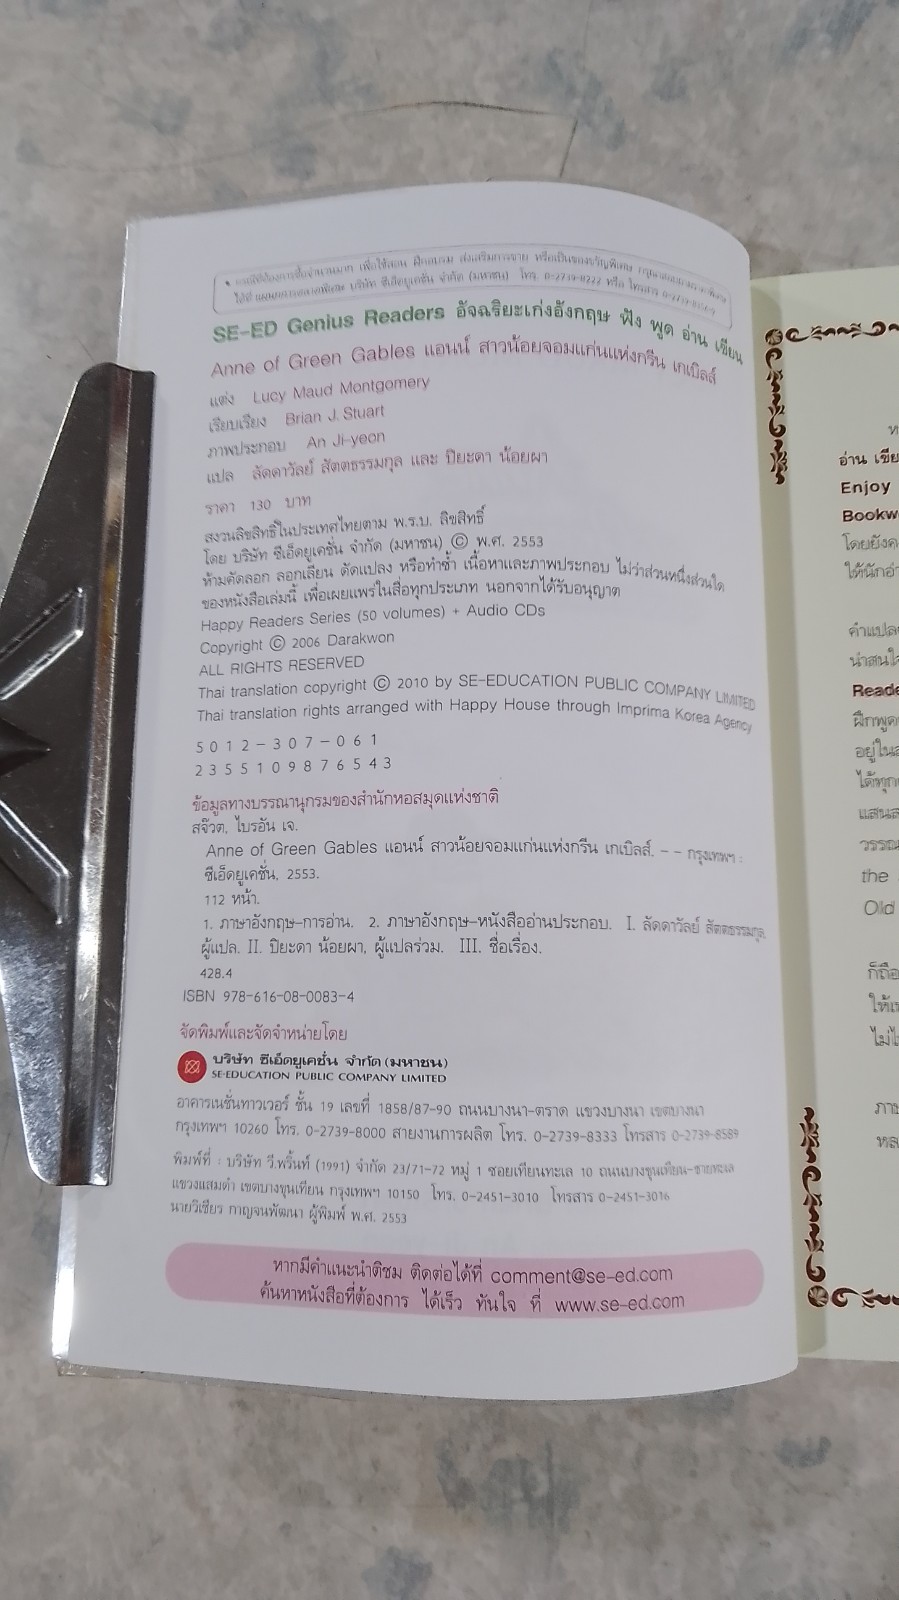 • กรณีที่ต้องการซื้อจำนวนมาก เพื่อใช้สอน ฝึกอบรม ส่งเสริมการขาย หรือเป็นของขวัญพิเศษ
ได้ที่ แผนกการตลาดพิเศษ บริษัท ซีเอ็ดยูเคชั่น จำกัด (มหาชน) โทร. 0-2739-8222 หรือ โทรสาร
SE-ED Genius Readers อัจฉริยะเก่งอังกฤษ ฟัง พูด อ่าน เขียน
Anne of Green Gables แอนน์ สาวน้อยจอมแก่นแห่งกรีน เกเบิลส์
แต่ง Lucy Maud Montgomery
เรียบเรียง Brian J. Stuart
ภาพประกอบ An Ji-yeon
แปล ลัดดาวัลย์ สัตตธรรมกุล และ ปิยะดา น้อยผา
ราคา 130 บาท
สงวนลิขสิทธิ์ในประเทศไทยตาม พ.ร.บ. ลิขสิทธิ์
โดย บริษัท ซีเอ็ดยูเคชั่น จำกัด (มหาชน) © พ.ศ. 2553
ห้ามคัดลอก ลอกเลียน ดัดแปลง หรือทำซ้ำ เนื้อหาและภาพประกอบ ไม่ว่าส่วนหนึ่งส่วนใด
ของหนังสือเล่มนี้ เพื่อเผยแพร่ในสื่อทุกประเภท นอกจากได้รับอนุญาต
Happy Readers Series (50 volumes) + Audio CDs
Copyright © 2006 Darakwon
ALL RIGHTS RESERVED
Thai translation copyright © 2010 by SE-EDUCATION PUBLIC COMPANY LIMITED
Thai translation rights arranged with Happy House through Imprima Korea Agency
5 0 1 2 – 3 0 7 – 0 6 1
2 3 5 5 1 0 9 8 7 6 5 4 3
ข้อมูลทางบรรณานุกรมของสำนักหอสมุดแห่งชาติ
สจ๊วต, ไบรอัน เจ.
Anne of Green Gables แอนน์ สาวน้อยจอมแก่นแห่งกรีน เกเบิลส์. -- กรุงเทพฯ :
ซีเอ็ดยูเคชั่น, 2553.
112 หน้า.
1. ภาษาอังกฤษ–การอ่าน. 2. ภาษาอังกฤษ–หนังสืออ่านประกอบ. I. ลัดดาวัลย์ สัตตธรรมกุล,
ผู้แปล. II. ปิยะดา น้อยผา, ผู้แปลร่วม. III. ชื่อเรื่อง.
428.4
ISBN 978-616-08-0083-4
จัดพิมพ์และจัดจำหน่ายโดย
บริษัท ซีเอ็ดยูเคชั่น จำกัด (มหาชน)
SE-EDUCATION PUBLIC COMPANY LIMITED
อาคารเนชั่นทาวเวอร์ ชั้น 19 เลขที่ 1858/87-90 ถนนบางนา-ตราด แขวงบางนา เขตบางนา
กรุงเทพฯ 10260 โทร. 0-2739-8000 สายงานการผลิต โทร. 0-2739-8333 โทรสาร 0-2739-8589
พิมพ์ที่ : บริษัท วี.พริ้นท์ (1991) จำกัด 23/71-72 หมู่ 1 ซอยเทียนทะเล 10 ถนนบางขุนเทียน-ชายทะเล
แขวงแสมดำ เขตบางขุนเทียน กรุงเทพฯ 10150 โทร. 0-2451-3010 โทรสาร 0-2451-3016
นายวิเชียร กาญจนพัฒนา ผู้พิมพ์ พ.ศ. 2553
หากมีคำแนะนำติชม ติดต่อได้ที่ comment@se-ed.com
ค้นหาหนังสือที่ต้องการ ได้เร็ว ทันใจ ที่ www.se-ed.com
อ่าน เขีย
Enjoy
Bookw
โดยยังค
ให้นักอ่า
คำแปล
นำสนใ
Reade
ฝึกพูด
อยู่ในส
ได้ทุก
แสนส
วรรณ
the
Old
ก็ถือ
ให้เ
ไม่ไ
ภาษ
หล